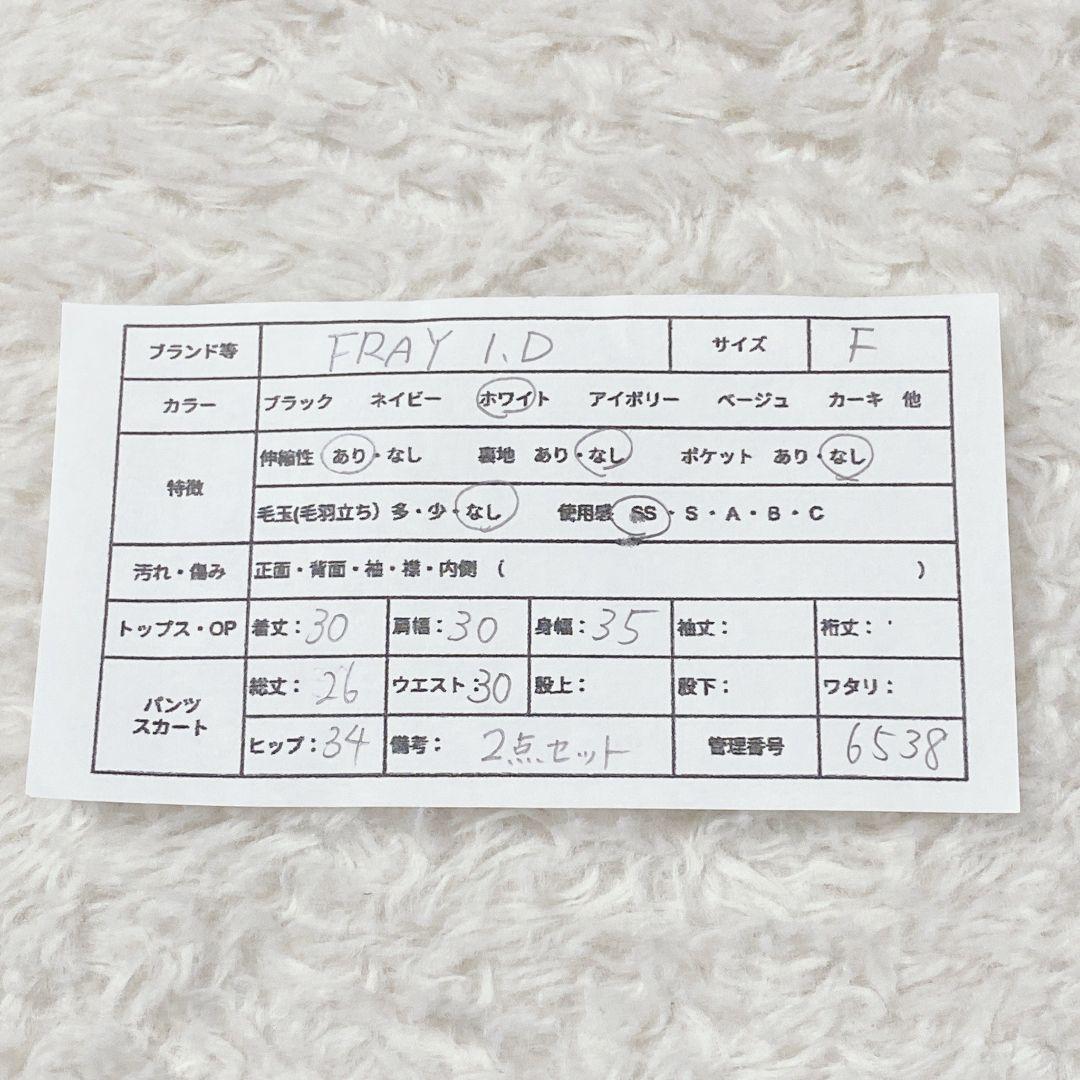 ブランド等 FRAY I.D サイズ F
カラー ブラック ネイビー ホワイト アイボリー ベージュ カーキ 他
特徴 伸縮性 あり・なし 裏地 あり・なし ポケット あり・なし
毛玉(毛羽立ち) 多・少・なし 使用感 SS・S・A・B・C
汚れ・傷み 正面・背面・袖・襟・内側 ( )
トップス・OP 着丈:30 肩幅:30 身幅:35 袖丈: 裄丈:
パンツ スカート 総丈:26 ウエスト:30 股上: 股下: ワタリ:
ヒップ:34 備考: 2点セット 管理番号 6538